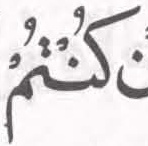 ن كُنْتُمْ